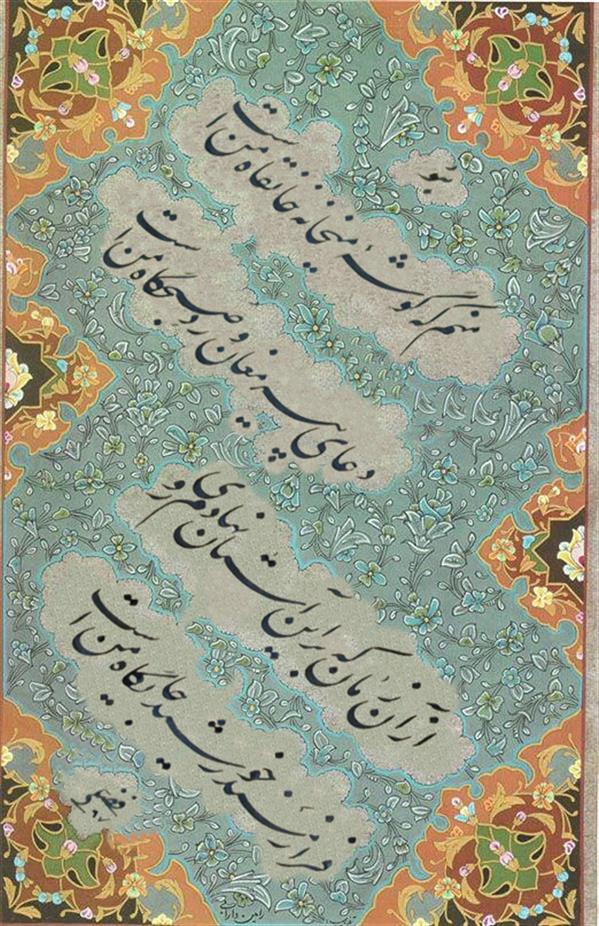 منم که گوشهٔ میخانه خانقاه من است
دعای پیر مغان ورد صبحگاه من است
از آن زمان که بر این آستان نهادم روی
فراز مسند خورشید جایگاه من است
تذهیب رامین دارابی